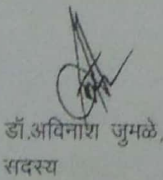 डॉ.अविनाश जुमळे,
सदस्य